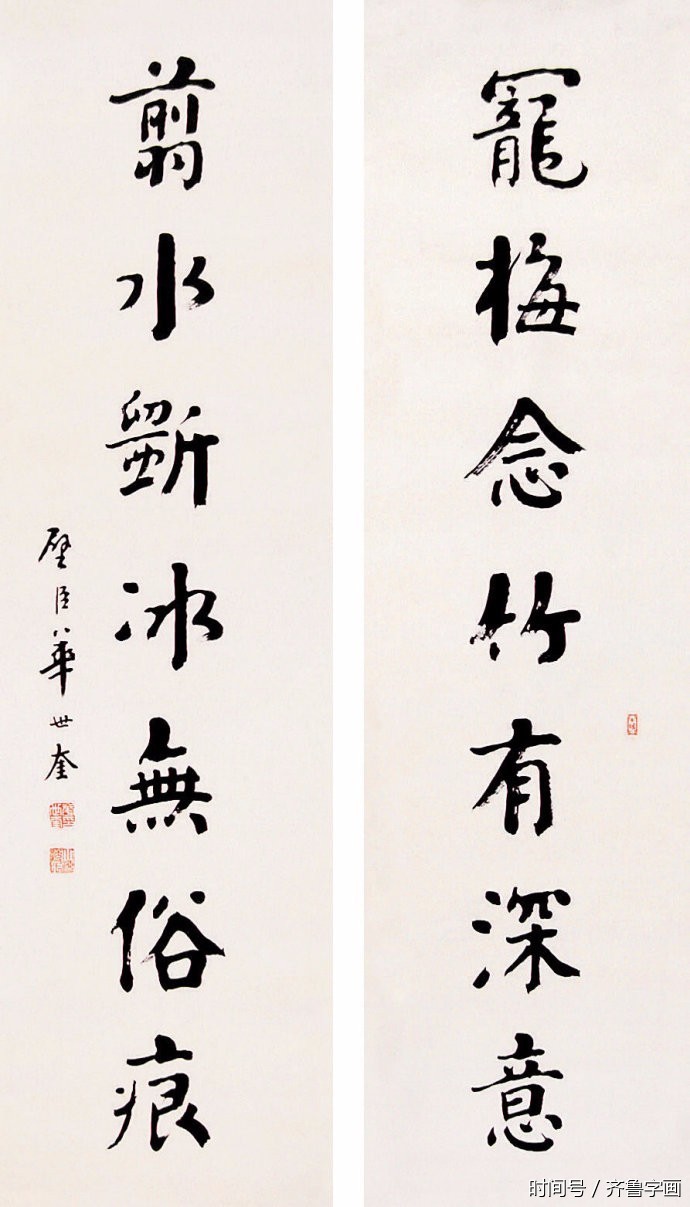 寵梅念竹有深意
翦水斲冰無俗痕
璧臣華世奎
时间号 / 齐鲁字画